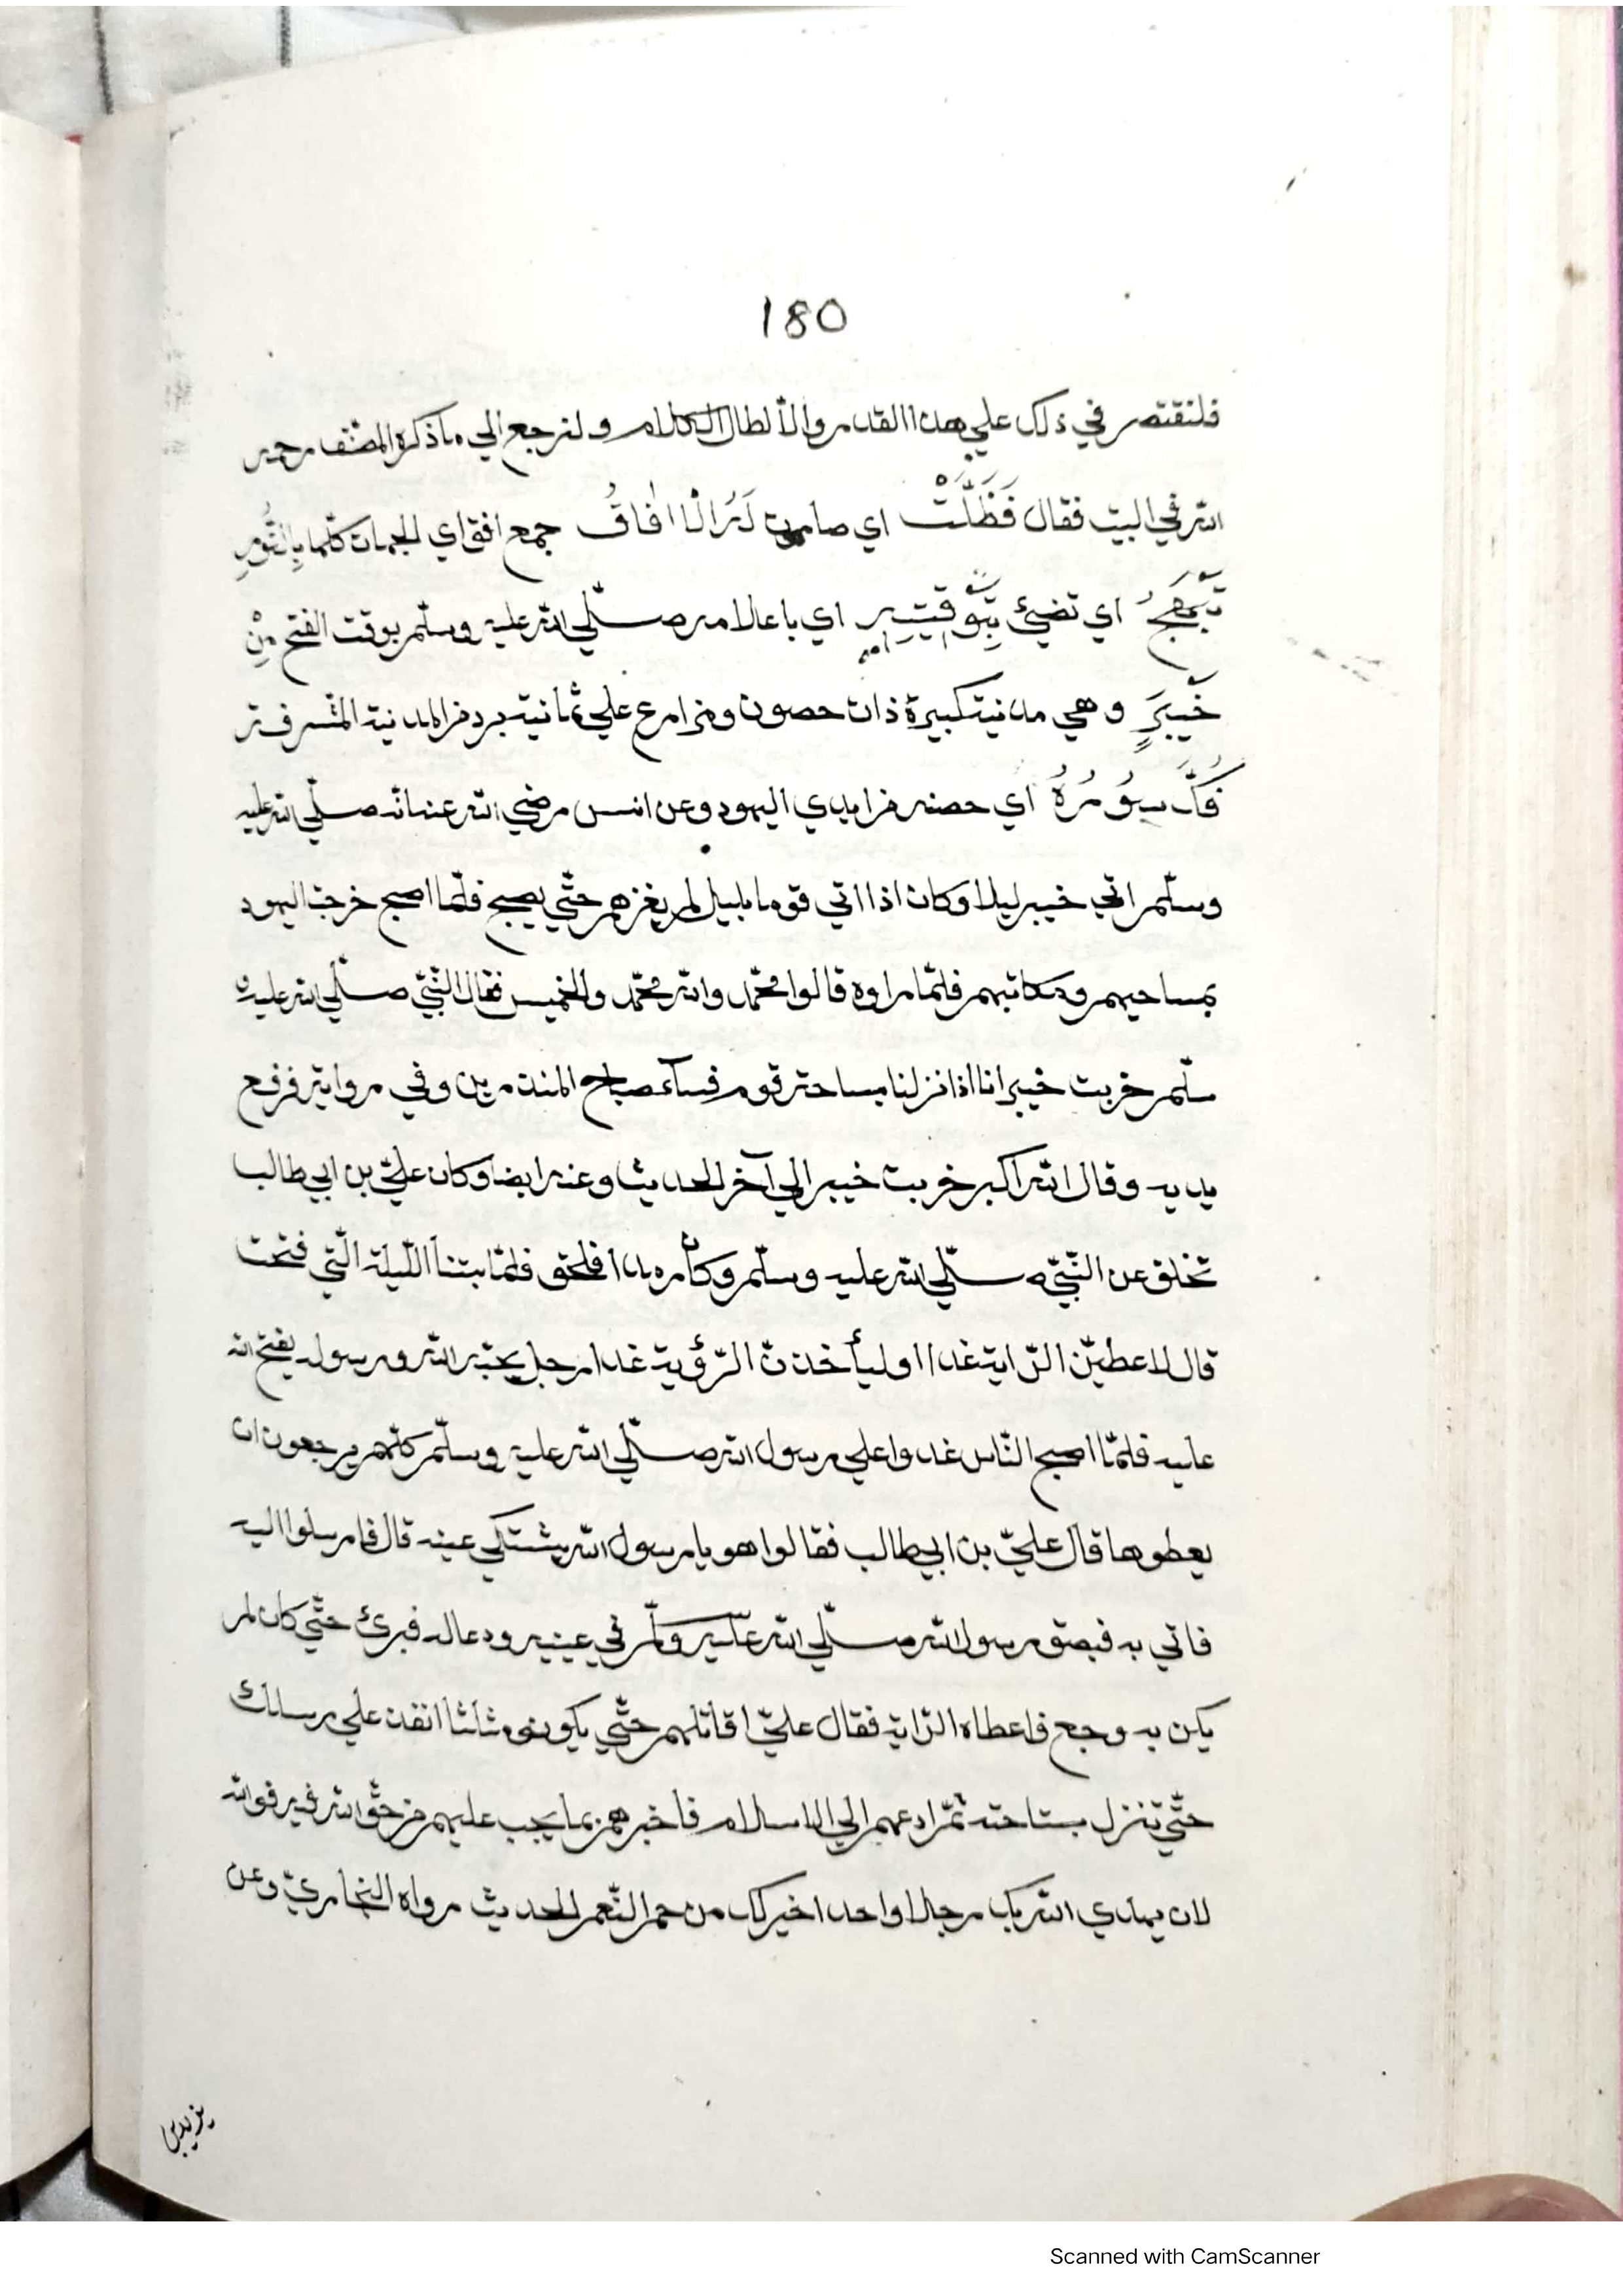 180
فلنقتصر في ذلك علي هذا القدر والا لطال الكلام ولنرجع الي ما ذكره المصنف رحمه
الله في البيت فقال فَظَلَّتْ اي صارت لَهُ الْاٰفَاقُ جمع افق اي الجهات كلها بِالنُّورِ
تَبْهَجُ اي تضيئ بِتَوْقِيتِهِ اي باعلامه صلّي الله عليه وسلّم بوقت الفتح مِنْ
خَيْبَرٍ وهي مدنية كبيرة ذات حصون ومزارع علي ثمانية برد من المدنية المشرفة
فُكَّ سُورُهُ اي حصنه من ايدي اليهود وعن انس رضي الله عنه انه صلّي الله عليه
وسلّم اتي خيبر ليلا وكان اذا اتي قوما بليل لم يغزهم حتّي يصبح فلمّا اصبح خرجت اليهود
بمساحيهم ومكاتبهم فلمّا راوه قالوا محمّد والله محمّد والخميس فقال النّبيّ صلّي الله عليه و
سلّم خربت خيبر انا اذا نزلنا بساحة قوم فسآء صباح المنذرين وفي رواية فرفع
يديه وقال الله اكبر خربت خيبر الي آخر الحديث وعنه ايضا وكان عليّ بن ابي طالب
تخلق عن النّبيّ صلّي الله عليه وسلّم وكان رمدا فلحق فلمّا بتنا اللّيلة الّتي فتحت
قال لاعطينّ الرّاية غدا او ليأخذنّ الرّؤية غدا رجل يحبّه الله ورسوله يفتح الله
عليه فلمّا اصبح النّاس غدوا علي رسول الله صلّي الله عليه وسلّم كلّهم يرجعون ان
يعطوها قال عليّ بن ابي طالب فقالوا هو يا رسول الله يشتكي عينه قال فارسلوا اليه
فاتي به فبصق رسول الله صلّي الله عليه وسلّم في عينيه ودعاله فبرئ حتّي كان لم
يكن به وجع فاعطاه الرّاية فقال عليّ اقاتلهم حتّي يكونوا مثلنا انفذ علي رسلك
حتّي تنزل بستاحته ثمّ ادعهم الي الاسلام فاخبرهم بما يجب عليهم من حقّ الله فيه فوالله
لان يهدي الله بك رجلا واحدا خير لك من حمر النّعم الحديث رواه البخاريّ وعن